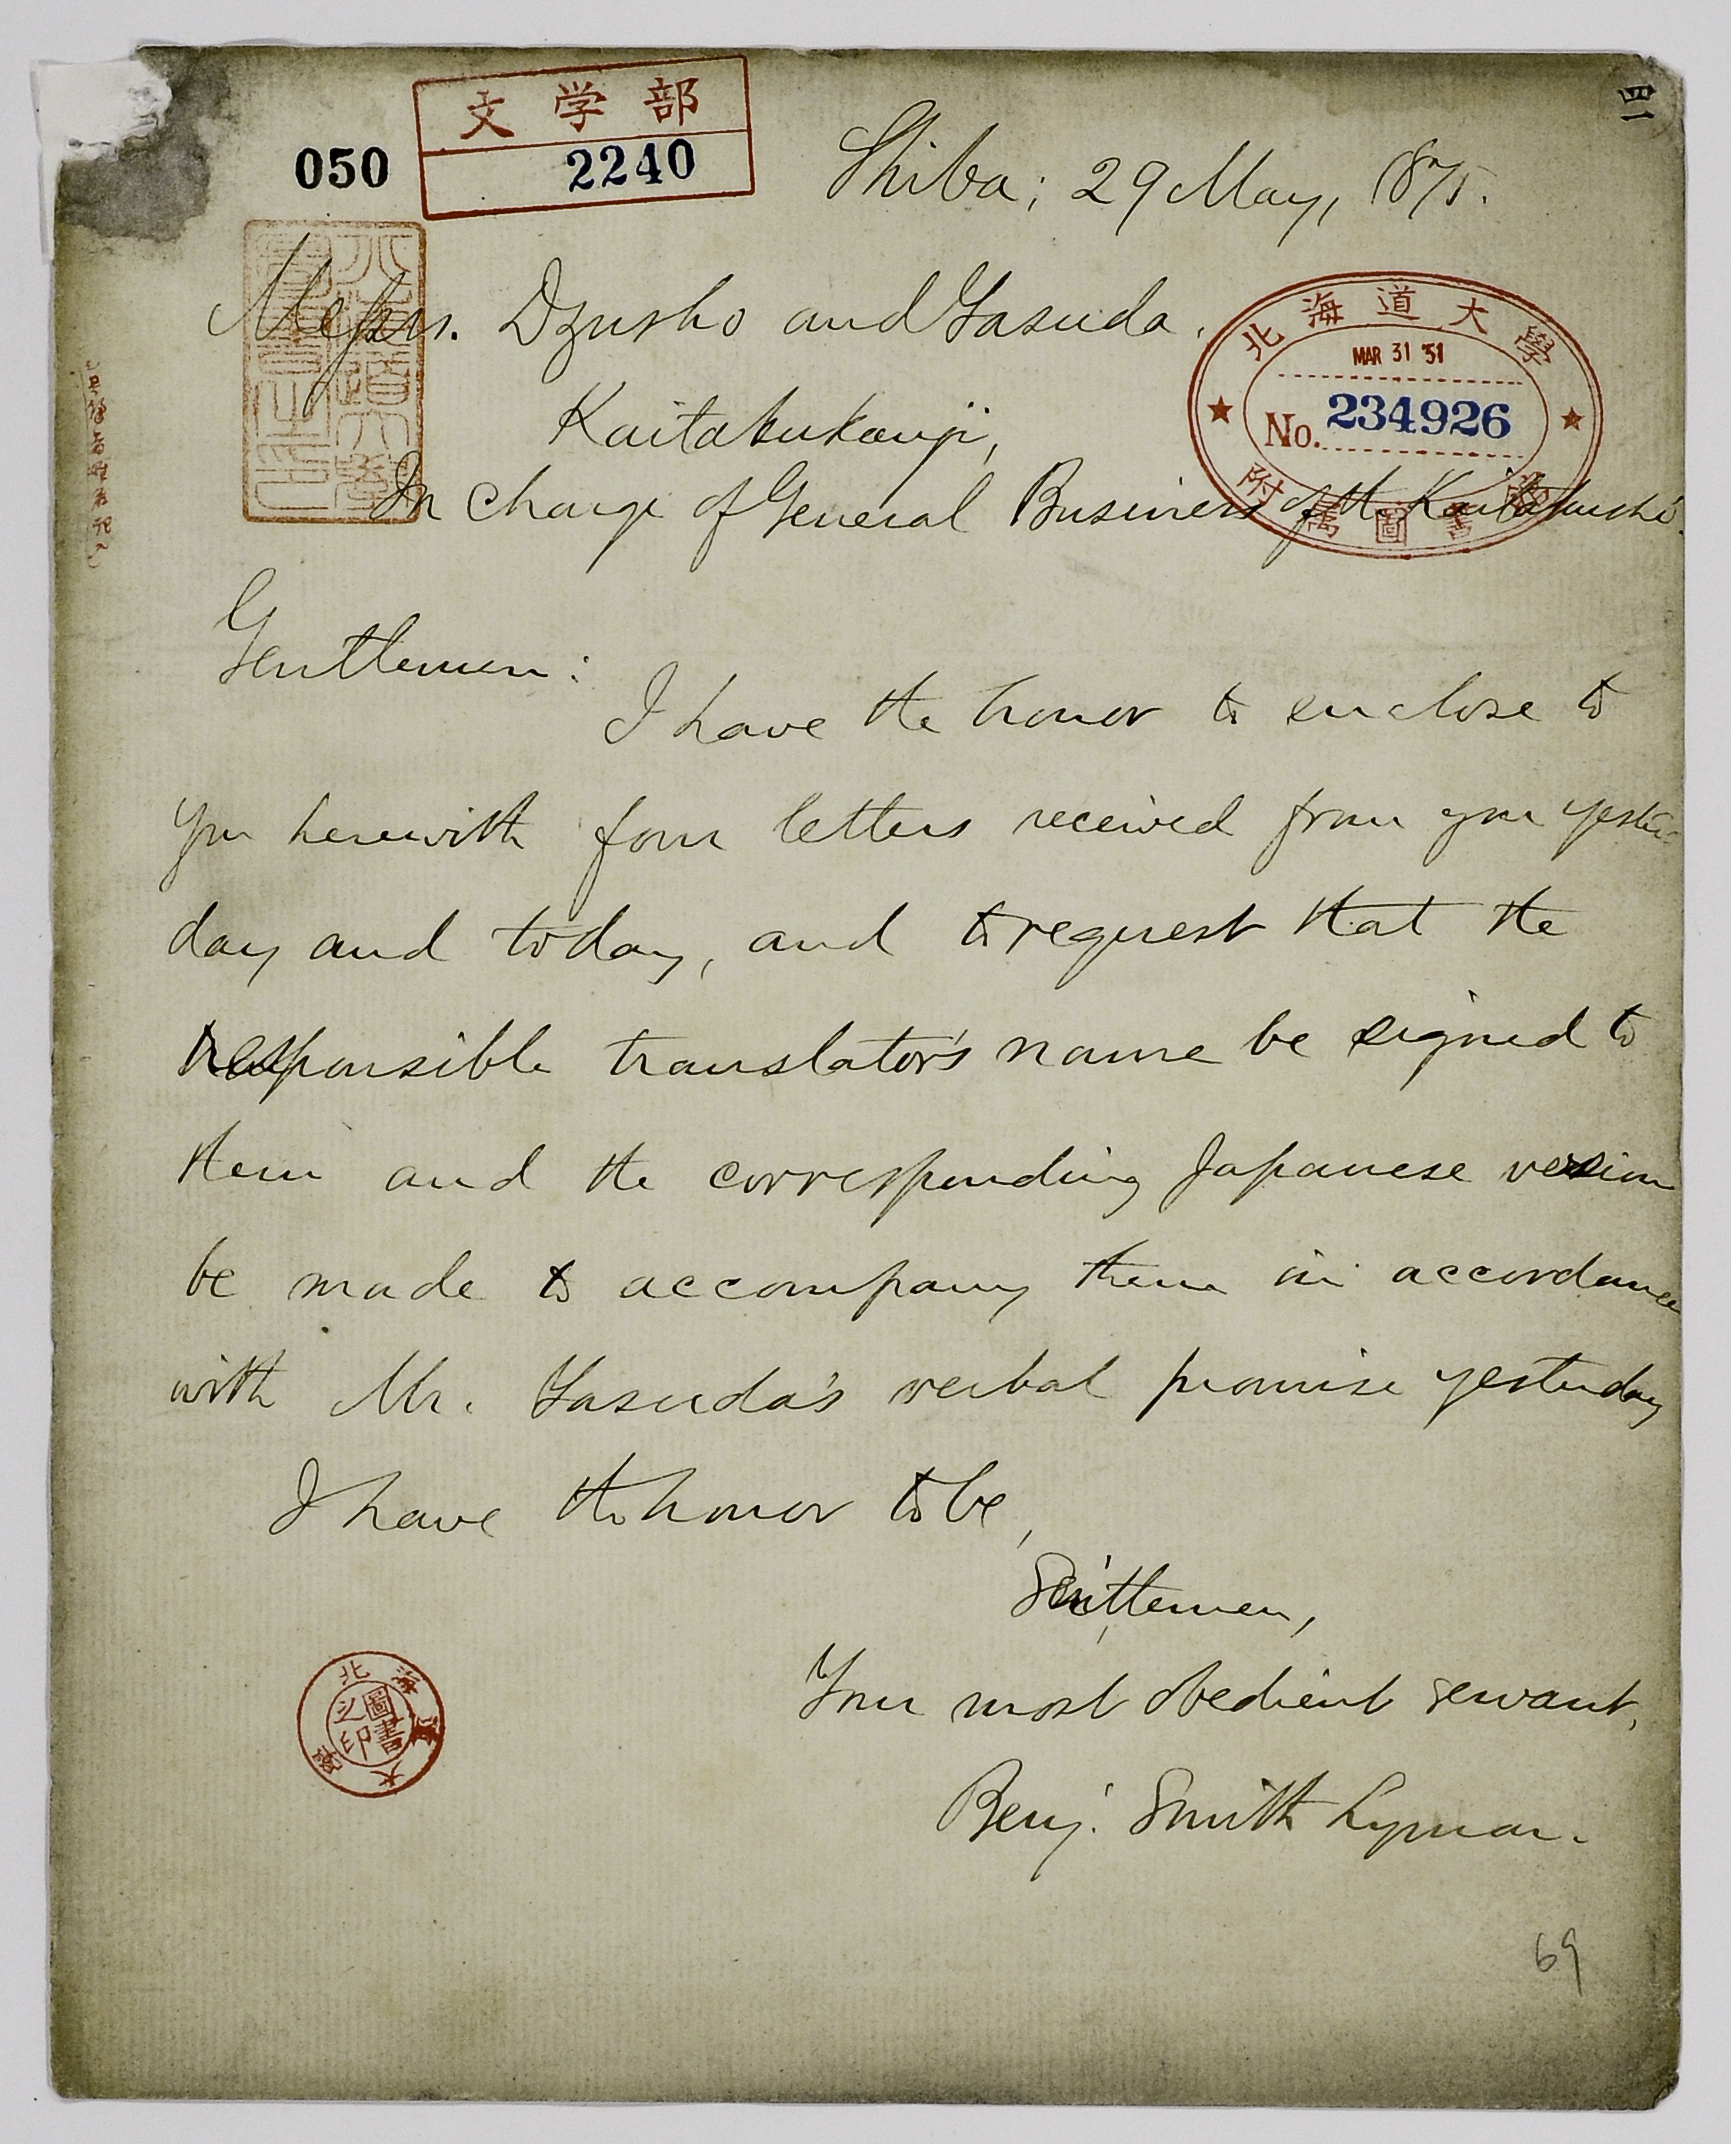 四一
文学部
050
2240
Shiba; 29 May, 1875.
Messrs. Dzusho and Yasuda,
北海道大學
MAR 31 '51
No. 234926
附属圖書館
北海道大學圖書之印
Kaitakukanji,
In charge of General Business of the Kaitakushi.
Gentlemen:
I have the honor to enclose to
you herewith four letters received from you yester-
day and today, and to request that the
responsible translator's name be signed to
them and the corresponding Japanese version
be made to accompany them in accordance
with Mr. Yasuda's verbal promise yesterday
I have the honor to be,
Gentlemen,
Your most obedient servant,
Benj. Smith Lyman.
北海道大學
圖書之印
69